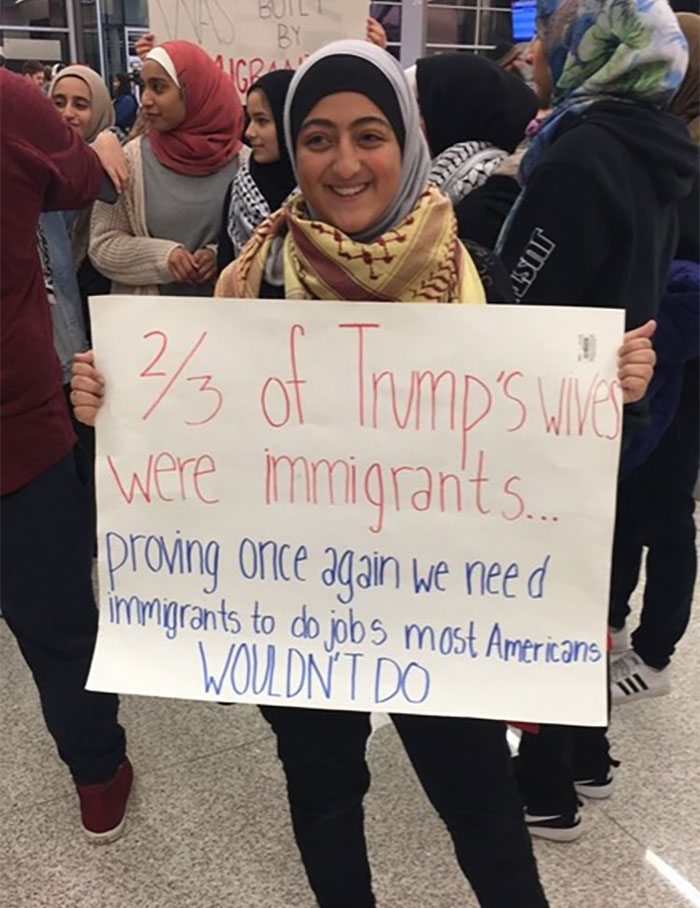 WAS BUILT
BY
IMMIGRANTS
2/3 of Trump's wives
were immigrants...
proving once again we need
immigrants to do jobs most Americans
WOULDN'T DO
JUST